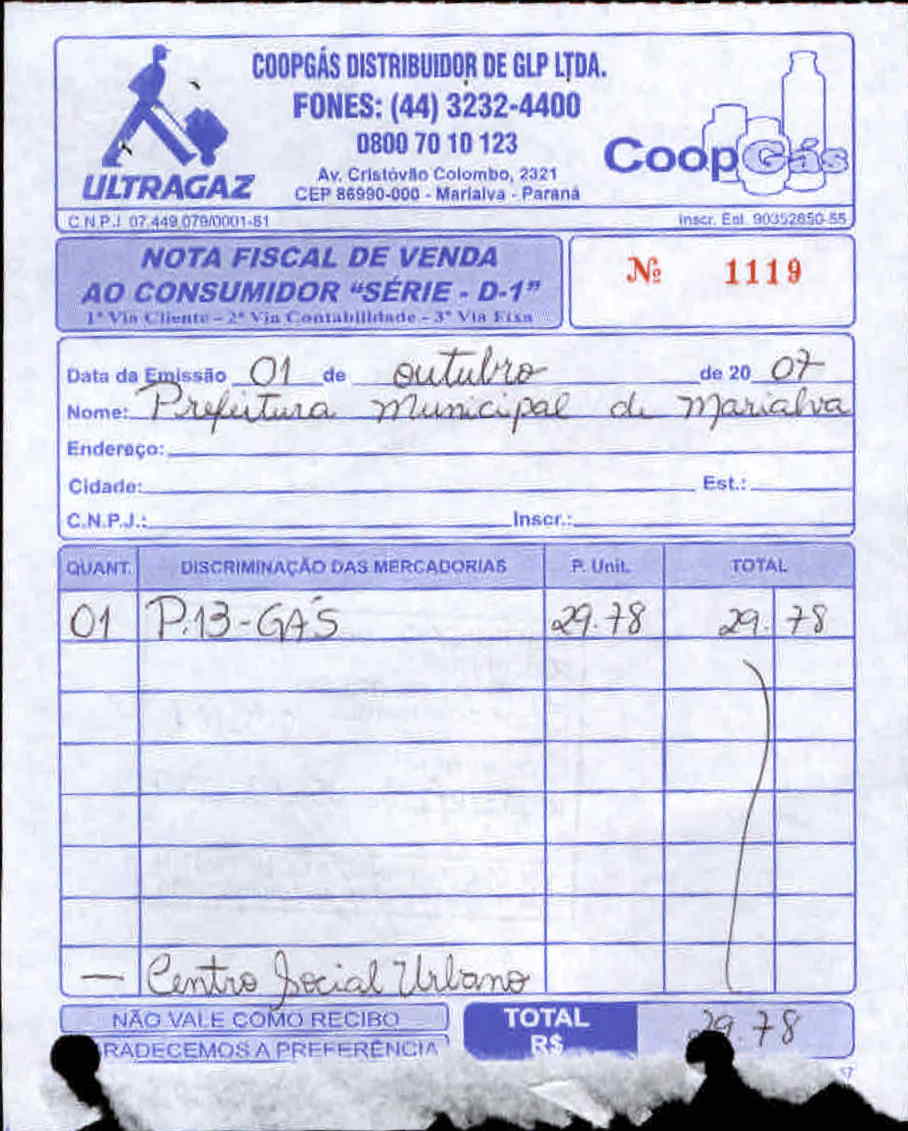 COOPGÁS DISTRIBUIDOR DE GLP LTDA.
FONES: (44) 3232-4400
0800 70 10 123
Av. Cristóvão Colombo, 2321
CEP 86990-000 - Marialva - Paraná
ULTRAGAZ
CoopGás
C.N.P.J. 07.449.079/0001-81
Inscr. Est. 90352850-55
NOTA FISCAL DE VENDA
AO CONSUMIDOR "SÉRIE - D-1"
1ª Via Cliente - 2ª Via Contabilidade - 3ª Via Fixa
Nº 1119
Data da Emissão 01 de outubro de 20 07
Nome: Prefeitura Municipal de Marialva
Endereço:
Cidade: Est.:
C.N.P.J.: Inscr.:
QUANT. DISCRIMINAÇÃO DAS MERCADORIAS P. Unit. TOTAL
01 P.13-GÁS 29.78 29.78
— Centro Social Urbano
NÃO VALE COMO RECIBO
RADECEMOS A PREFERÊNCIA
TOTAL R$ 29.78